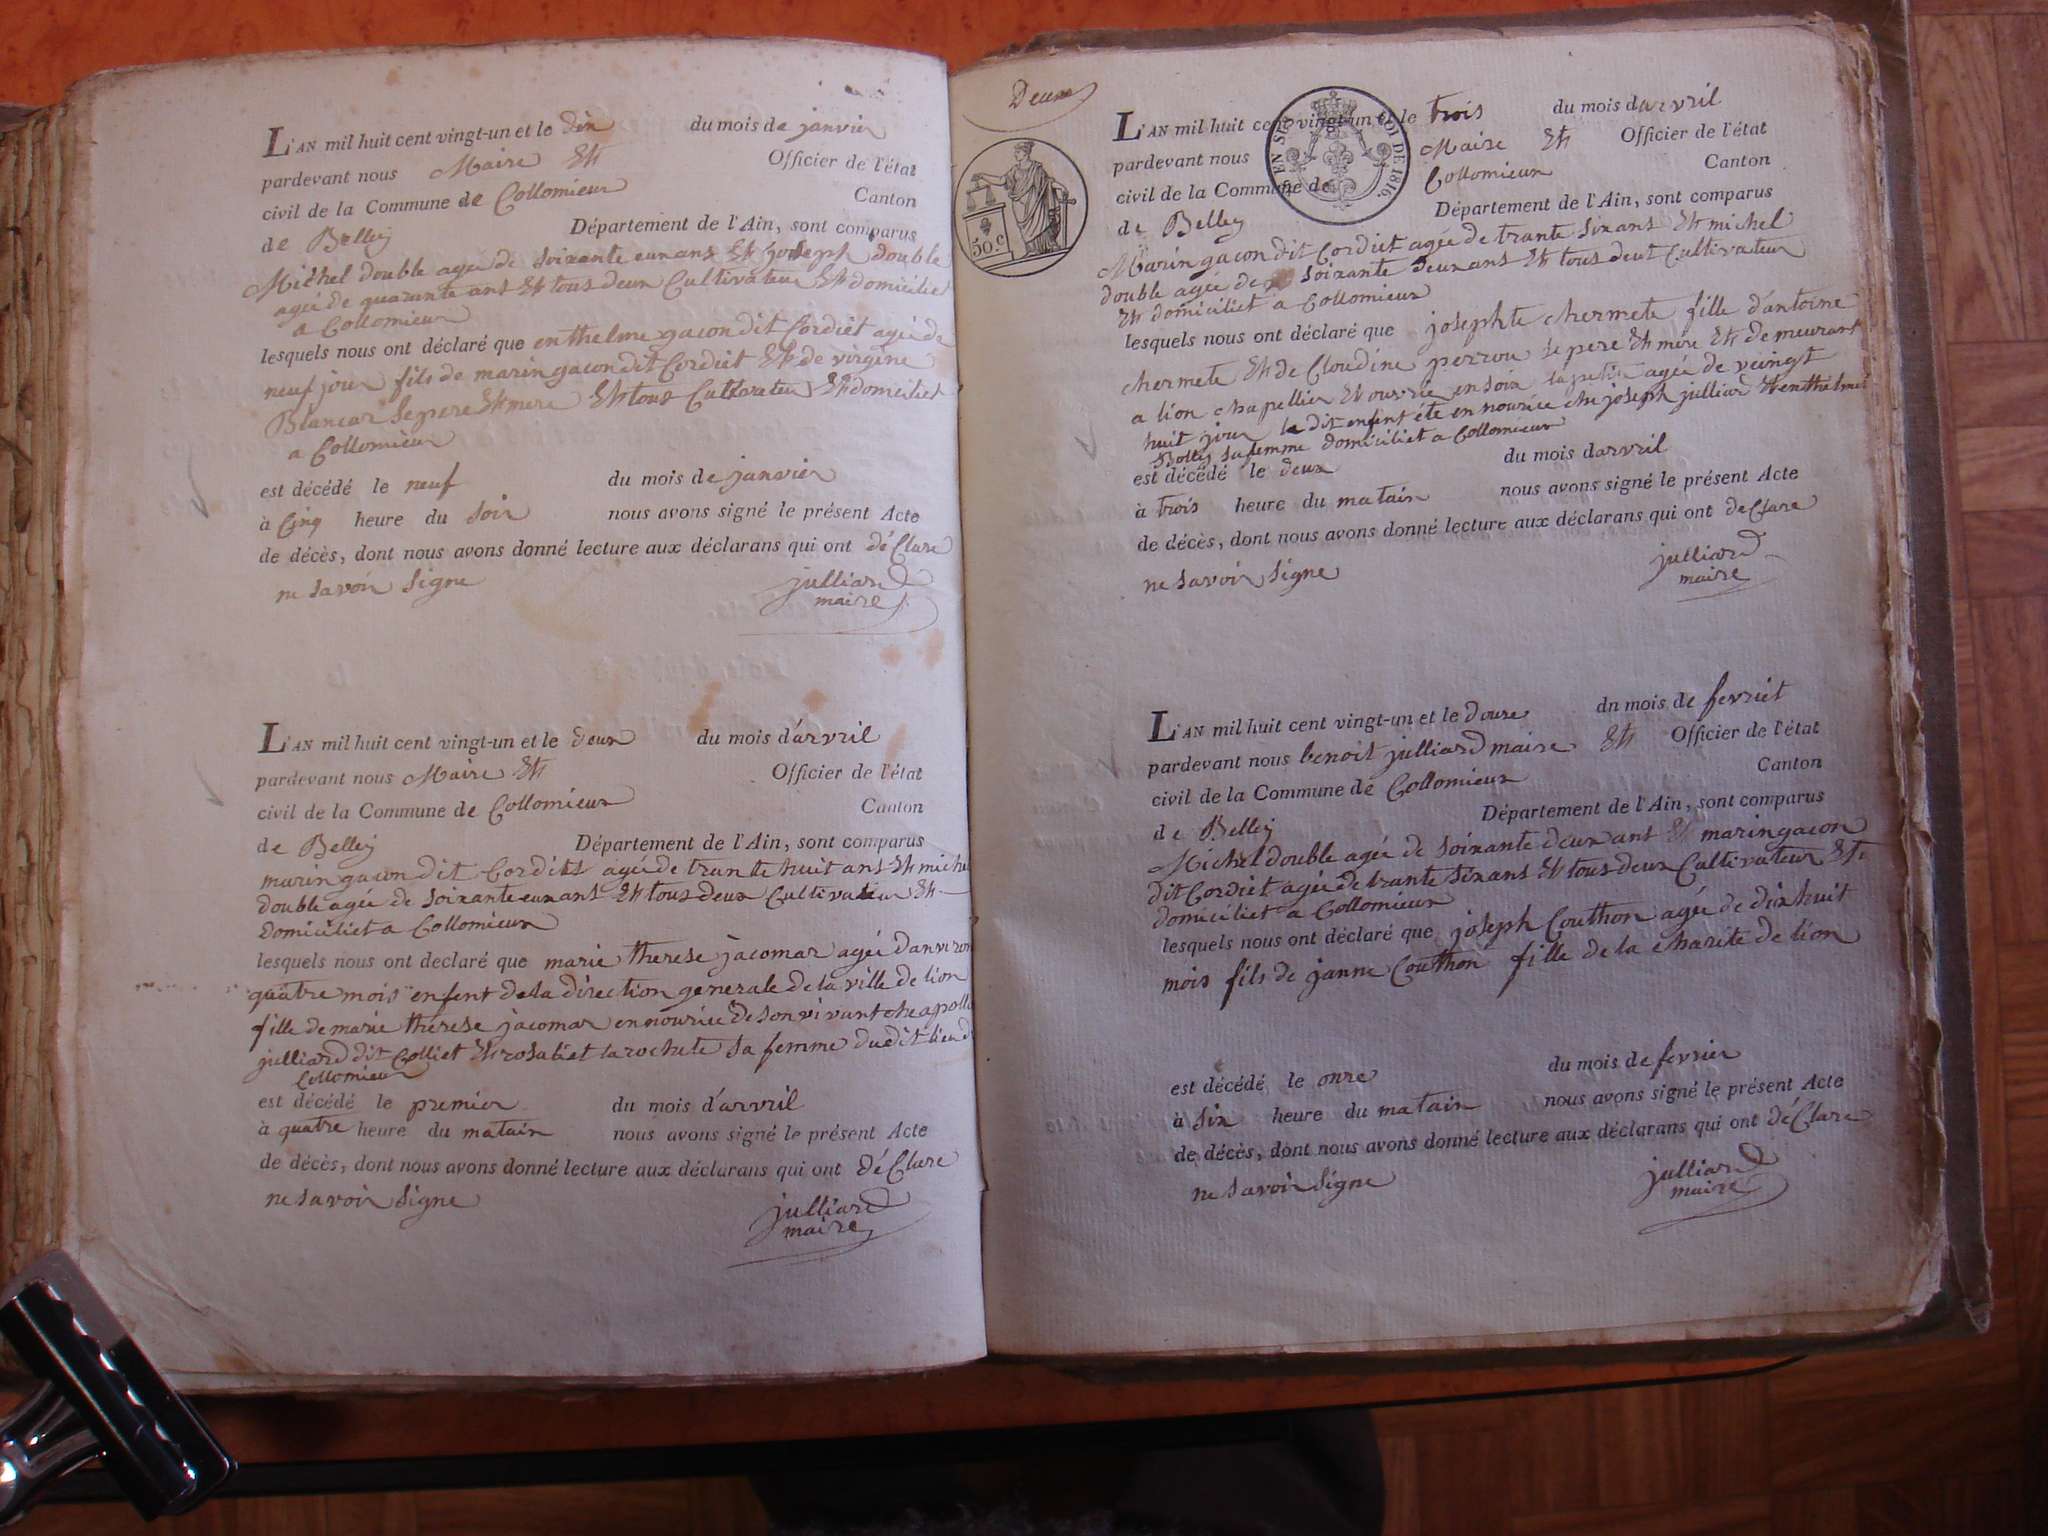 L'AN mil huit cent vingt-un et le dix du mois de janvier
pardevant nous Maire Et Officier de l'état
civil de la Commune de Collomieux Canton
de Belley Département de l'Ain, sont comparus
Michel double agée de soixante eunans Et joseph double
agée de quarante ans Et tous deux Cultivateur Et domiciliet
a Collomieux
lesquels nous ont déclaré que enthelme gacon dit Cordiet agée de
neuf jour fils de marin gacon dit Cordiet Et de virgine
Blancar le pere Et mere Et tous Cultivateur Et domiciliet
a Collomieux
est décédé le neuf du mois de janvier
à Cinq heure du soir nous avons signé le présent Acte
de décès, dont nous avons donné lecture aux déclarans qui ont déClare
ne savoir signe julliard
maire
L'AN mil huit cent vingt-un et le deux du mois d'arvril
pardevant nous Maire Et Officier de l'état
civil de la Commune de Collomieux Canton
de Belley Département de l'Ain, sont comparus
marin gacon dit Cordiets agée de trante huit ans Et michel
double agée de soixante eunans Et tous deux Cultivateur Et
domiciliet a Collomieux
lesquels nous ont declaré que marie therese jacomar agée d'anviron
quatre mois enfent de la direction generale de la ville de lion
fille de marie therese jacomar en nourice de son vivant che apollo
julliard dit Colliet Et rosaliet larochete sa femme dudit lieu d
Collomieux
est décédé le premier du mois d'arvril
à quatre heure du matain nous avons signé le présent Acte
de décès, dont nous avons donné lecture aux déclarans qui ont déClare
ne savoir signe julliard
maire
Deux
50.c
EN SUS LOI DE 1816.
L'AN mil huit cent vingt-un et le trois du mois d'arvril
pardevant nous Maire Et Officier de l'état
civil de la Commune de Collomieux Canton
de Belley Département de l'Ain, sont comparus
Marin gacon dit Cordiet agée de trante sixans Et michel
double agée de soixante deuxans Et tous deut Cultivateur
Et domiciliet a Collomieux
lesquels nous ont déclaré que josephte chermete fille d'antoine
chermete Et de Cloudine perrou le pere Et mere Et demeurant
a lion chapellier Et ouvrie en soix agée de veingt
huit jour le dit enfent été en nourice che joseph julliard Et enthelmet
Bolley sa femme domiciliet a Collomieux
est décédé le deux du mois d'arvril
à trois heure du matain nous avons signé le présent Acte
de décès, dont nous avons donné lecture aux déclarans qui ont deClare
ne savoir signe julliard
maire
L'AN mil huit cent vingt-un et le douze dn mois de fevriet
pardevant nous benoit julliard maire Et Officier de l'état
civil de la Commune de Collomieux Canton
de Belley Département de l'Ain, sont comparus
Michel double agée de soixante deux ant Et marin gacon
dit Cordiet agée de trante sixans Et tous deux Cultivateur Et
domiciliet a Collomieux
lesquels nous ont déclaré que joseph Couthon agée de dix huit
mois fils de janne Couthon fille de la charite de lion
est décédé le onze du mois de fevrier
à six heure du matain nous avons signé le présent Acte
de décès, dont nous avons donné lecture aux déclarans qui ont déClare
ne savoir signe julliard
maire